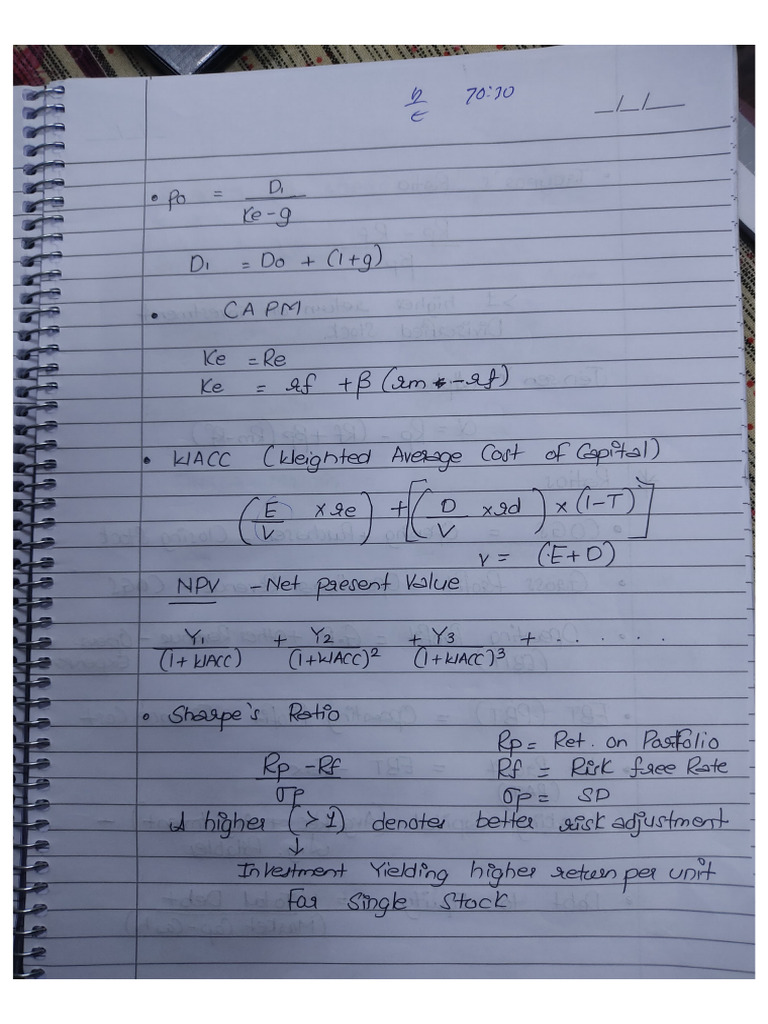 D/E 70:30 _/_/_
• Po = D1 / (Ke - g)
D1 = Do + (1+g)
• CAPM
Ke = Re
Ke = rf + β (rm - rf)
• WACC (Weighted Average Cost of Capital)
(E/V × re) + [(D/V × rd) × (1-T)]
V = (E+D)
NPV - Net present Value
Y1/(1+WACC) + Y2/(1+WACC)² + Y3/(1+WACC)³ + ......
• Sharpe's Ratio
Rp = Ret. on Portfolio
(Rp - Rf)/σp Rf = Risk free Rate
σp = SD
A higher (>1) denotes better risk adjustment
↓
Investment Yielding higher return per unit
For Single Stock